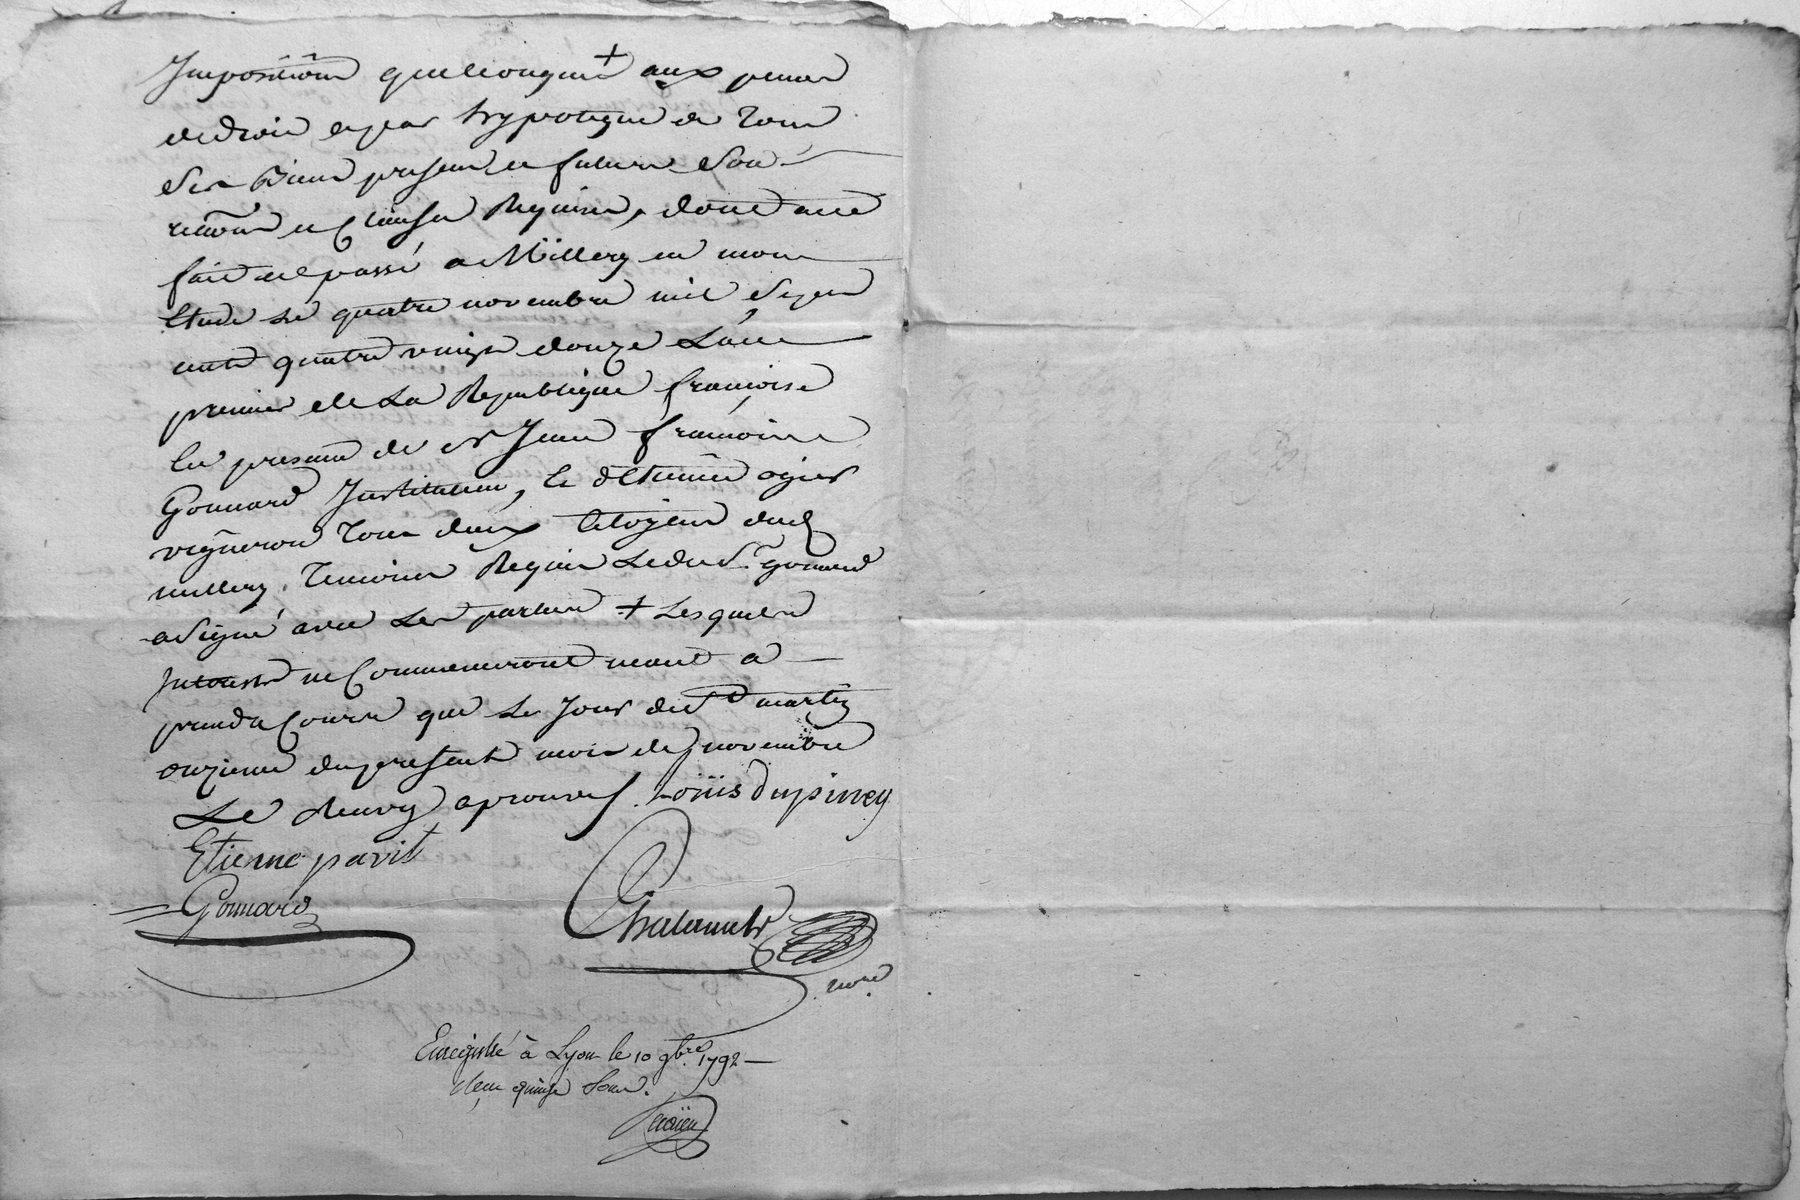 Impositions quelconques + aux peines
de droit et par hypoteque de tous
ses Biens presents et futurs Sou-
missions et Clauses Requises, dont acte
fait et passé a Millery en mon
Etude Le quatre novembre mil Sept
cents quatre vingts douze L'an
premier de La Republique françoise
En presence de Sr Jean françois
Gonnard Instituteur, et d'Etienne ogier
vigneron tous deux Citoyens dud
millery, Temoins Requis Ledit Sr gonnard
a Signé avec Les parties + Lesquels
Interests ne Commenceront neant a
prendre Cours que Le Jour de St martin
onzieme du present mois de novembre
Le Renvoy aprouvé. Loüis Dupiney
Etienne pavit
Gonnard
Chalamel
nore.
Enregistré à Lyon le 10 9bre 1792
reçu quinze Sous.